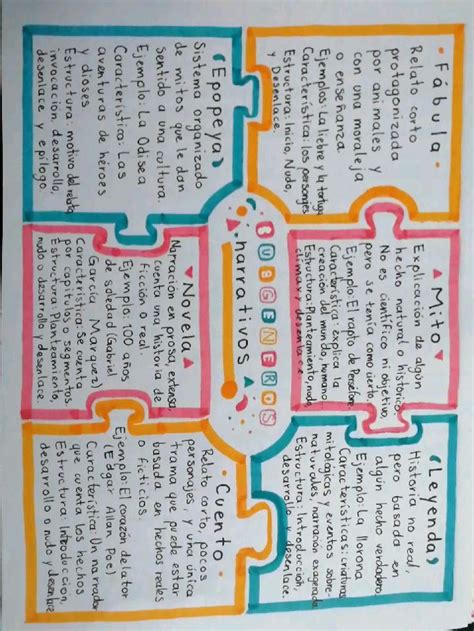 Fábula
Relato corto
protagonizada
por animales y
con una moraleja
o enseñanza
Ejemplos: La liebre y la tortuga
Característica: los personajes
Estructora: Inicio, Nudo,
y Desenlace.
Mito
Explicación de algún
hecho natural o historico.
No es científico ni objetivo,
pero se tenía como cierto.
Ejemplo: El rapto de Persefone
Característica: Explica la
creación del mundo, humano
Estructura: Planteamiento, nudo,
climax y desenlace
Leyenda
Historia no real,
pero basada en
algún hecho verdadero.
Ejemplo: La llorona
Características: criaturas
mitológicas y eventos sobre-
naturales, narración exagerada
Estructura: Introducción,
desarrollo y desenlace.
SUBGENEROS
narrativos
Epopeya
Sistema organizado
de mitos que le dan
sentido a una cultura.
Ejemplo: La Odisea
Característica: Las
aventuras de héroes
y dioses
Estructura: motivo del relato,
invocación, desarrollo,
desenlace y epílogo.
Novela
Narración en prosa extensa,
cuenta una historia de
ficción o real.
Ejemplo: 100 años
de soledad (Gabriel
García Marquez)
Característica: Se cuenta
por capítulos o segmentos
Estructura: Planteamiento,
nudo o desarrollo y desenlace.
Cuento
Relato corto, pocos
personajes, y una unica
trama que puede estar
basada en hechos reales
o ficticios.
Ejemplo: El corazón delator
(Edgar Allan Poe)
Característica: Un narrador
que cuenta los hechos
Estructura: Introduccion,
desarrollo o nudo y desenlace